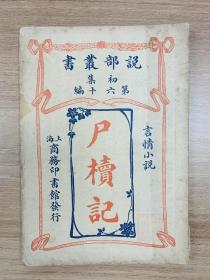 説部叢書
初集
第六十編
言情小説
尸櫝記
上海
商務印書館發行